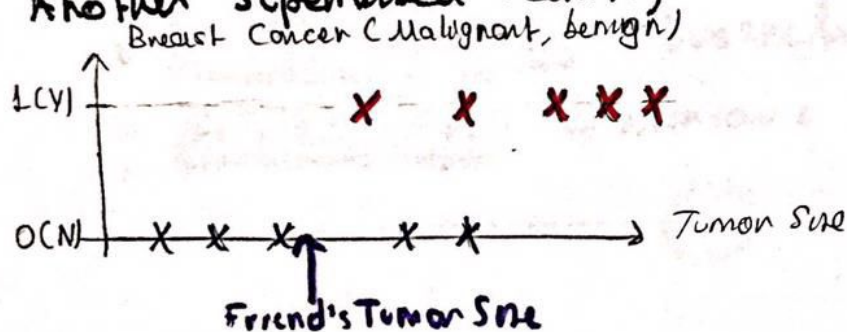 Another Supervised
Breast Cancer (Malignant, benign)
1(Y)
X X X X X
0(N) X X X X X Tumor Size
Friend's Tumor Size